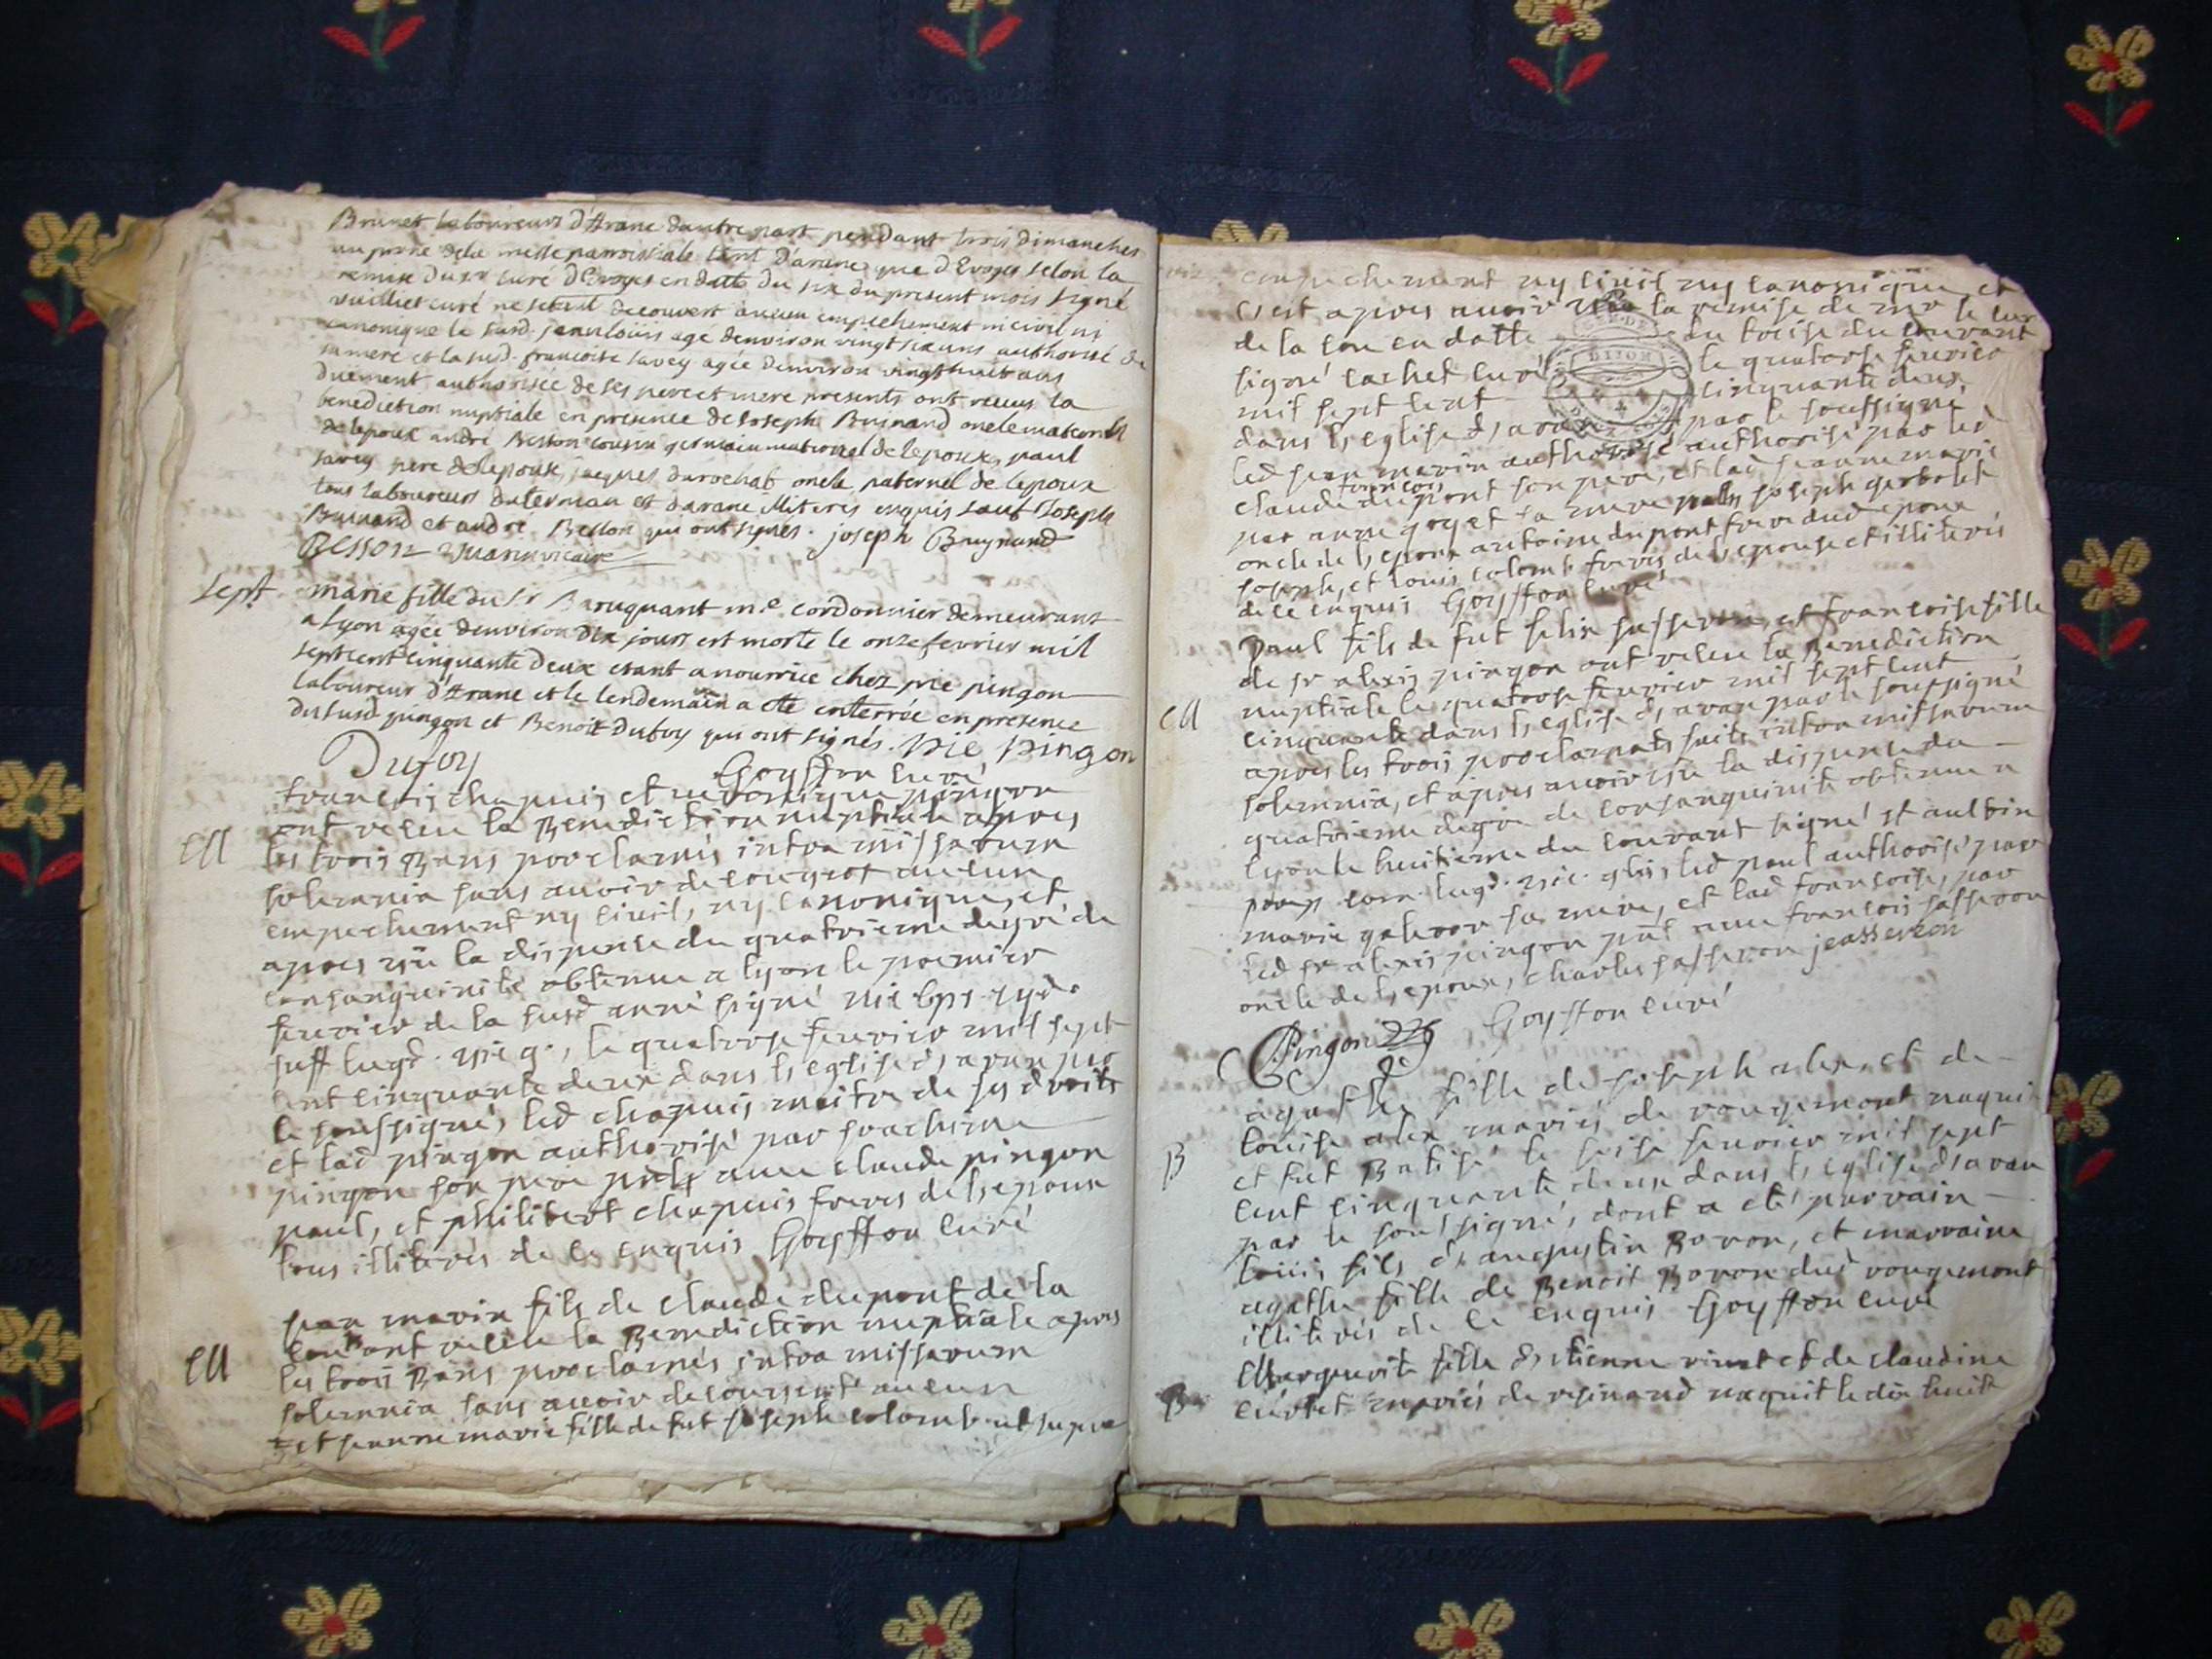 Brunet laboureurs d'Arane dautre part pendant trois dimanches
au prone dela messe parroissiale tant darane que d'Evoges selon la
remise du sr curé d'Evoges en datte du six du present mois signé
curé ne setant decouvert aucun empechement ni civil ni
canonique le susd. jean louis agé denviron vingt six ans authorisé de
sa mere et la susd. francoise savey agée denviron vingt huit ans
duement authorisée de ses pere et mere presents ont receus la
benediction nuptiale en presence de Joseph Buinand oncle maternel
de lepoux andré Besson cousin germain maternel de lepoux, paul
savey pere de lepouse, jacques durochat oncle paternel de lepouse
tous laboureurs et darane illiterés enquis sauf Joseph
Buinand et andré Besson qui ont signés. joseph Bugnand
Besson vicaire
Sept. marie fille du Sr Bruquant me cordonnier demeurant
a Lyon agée denviron dix jours est morte le onze fevrier mil
sept cent cinquante deux etant a nourrice chez pie pingon
laboureur d'Arane et le lendemain a eté enterrée en presence
du susd pingon et Benoit Dufoy qui ont signés. pie pingon
Dufoy
Goyffon curé
francois chapuis et pingon
ont receu la Benediction nuptiale apres
M les trois Bans proclamés intra missarum
solemnia sans avoir decouvert aucun
empechement ny civil, ny canonique, et
apres vü la dispense du quatrieme degré de
consanguinité obtenue a lyon le premier
fevrier de la susd anné signé
suff lugd. vic g., le quatorze fevrier mil sept
cent cinquante deux dans l'eglise d'aran par
le soussigné, led chapuis maitre de ses droits
et lad pingon authorisé par joachime
pingon son pere pnts avec claude pingon
paul, et philibert chapuis freres de l'epoux
tous illiterés de ce enquis Goyffon curé
jean marin fils de claude dupont de la
cou ont receu la Benediction nuptiale apres
M les trois Bans proclamés intra missarum
solemnia sans avoir decouvert aucun
et jeanne marie fille de fut joseph colomb ut supra
empechement ny civil ny canonique et
c'est apres avoir vü la remise de mr le cur
de la cou en datte du treise du courant
signé cachet curé le quatorze fevrier
mil sept cent cinquante deux
dans l'eglise d'aran par le soussigné
led jean marin authorisé authorisé par led
claude francois dupont son pere, et lad jeanne marie
par anne goyet sa mere pnts joseph gerbolet
oncle de l'epoux antoine dupont frere dud epoux
joseph, et louis colomb freres de l'epouse et illiterés
de ce enquis Goyffon curé
paul fils de fut felix jasseron, et francoise fille
de sr alexis pingon ont receu la Benediction
M nuptiale le quatorze fevrier mil sept cent
cinquante dans l'eglise d'aran par le soussigné
apres les trois proclamats faits intra missarum
solemnia, et apres avoir vü la dispense du
quatrieme degré de consanguinité obtenue a
lyon le huitieme du courant signé st aulbin
lugd. vic. glis, led paul authorisé par
marie sa mere, et lad francoise par
led sr alexis pingon pnt avec francois jasseron
oncle de l'epoux, charles jasseron jeasseron
Pingon Goyffon curé
agathe fille de joseph alex, et de
louise alex mariés de rougemont naqui
B et fut Batisé le seise fevrier mil sept
cent cinquante deux dans l'eglise d'aran
par le soussigné, dont a eté parrain
louis fils d'augustin Boron, et marraine
agathe fille de Benoit Boron dud rougemont
illiterés de ce enquis Goyffon curé
Marguerite fille d'etienne et de claudine
B mariés de resinand naquit le dix huit